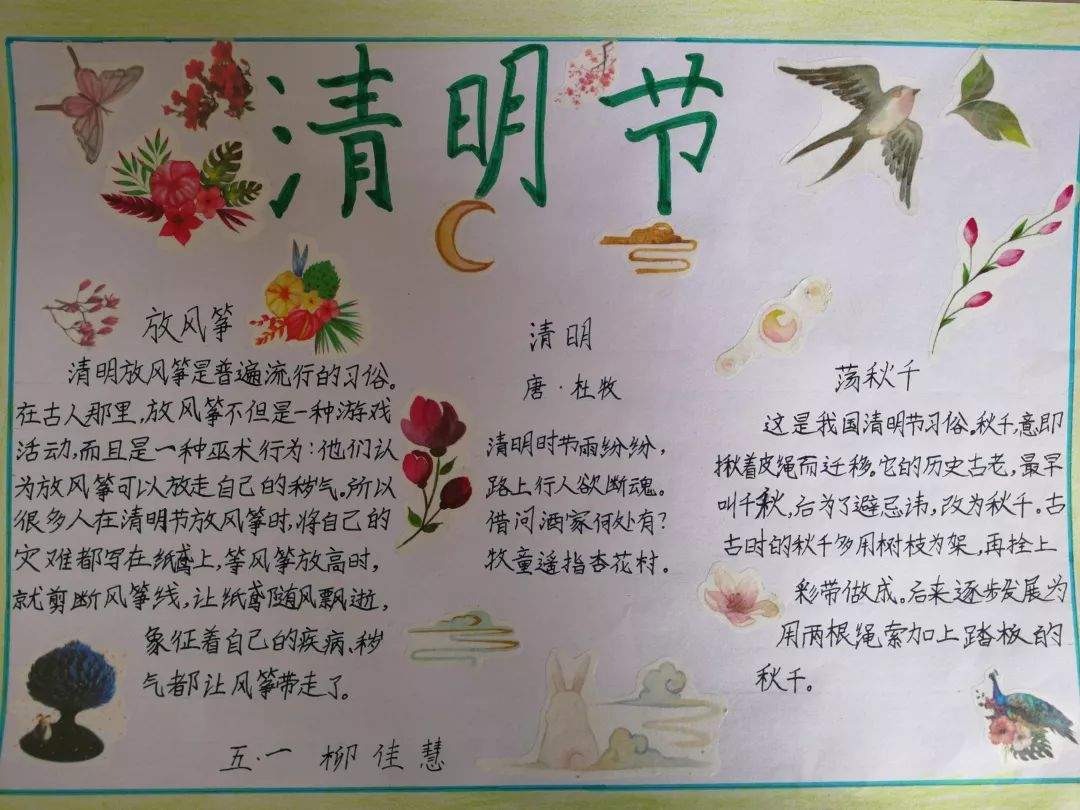 清明节
放风筝
清明放风筝是普遍流行的习俗。
在古人那里,放风筝不但是一种游戏
活动,而且是一种巫术行为:他们认
为放风筝可以放走自己的秽气。所以
很多人在清明节放风筝时,将自己的
灾难都写在纸鸢上,等风筝放高时,
就剪断风筝线,让纸鸢随风飘逝,
象征着自己的疾病、秽
气都让风筝带走了。
五·一 柳佳慧
清明
唐·杜牧
清明时节雨纷纷,
路上行人欲断魂。
借问酒家何处有?
牧童遥指杏花村。
荡秋千
这是我国清明节习俗。秋千,意即
揪着皮绳而迁移。它的历史古老,最早
叫千秋,后为了避忌讳,改为秋千。古
古时的秋千多用树枝为架,再拴上
彩带做成。后来逐步发展为
用两根绳索加上踏板的
秋千。